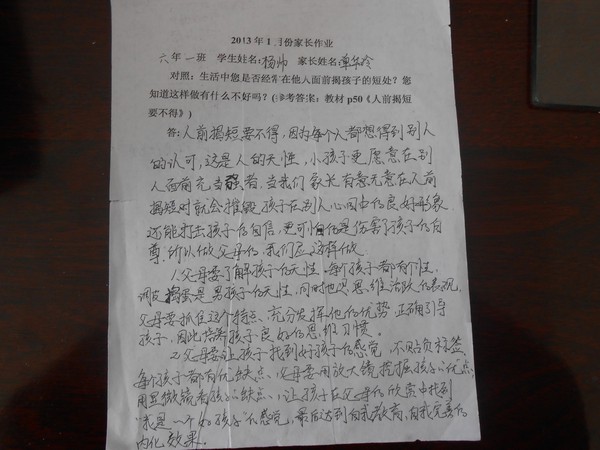 2013年1 月份家长作业
六年一班 学生姓名:杨帅 家长姓名:华玲
对照：生活中您是否经常在他人面前揭孩子的短处？您
知道这样做有什么不好吗？(参考答案：教材 p50《人前揭短
要不得》)
答:人前揭短要不得,因为每个人都想得到别人
的认可,这是人的天性,小孩子更愿意在别
人面前充当强者.当我们家长有意无意在人前
揭短时就会摧毁孩子在别人心目中的良好形象.
还能打击孩子的自信,更可怕的是伤害了孩子的自
尊,所以做父母的,我们应这样做.
1.父母要了解孩子的天性.每个孩子都有个性,
调皮捣蛋是男孩子的天性,同时也是思维活跃的表现,
父母要抓住这个特点、充分发挥他的优势 正确引导
孩子,因此培养孩子良好的思维习惯。
2.父母要让孩子找到好孩子的感觉,不贴负标签.
每个孩子都有优缺点,父母要用放大镜挖掘孩子"优点"
用显微镜看孩子"缺点",让孩子在父母的欣赏中找到
"我是一个好孩子"的感觉,最后达到自我教育,自我完善的
内化效果。